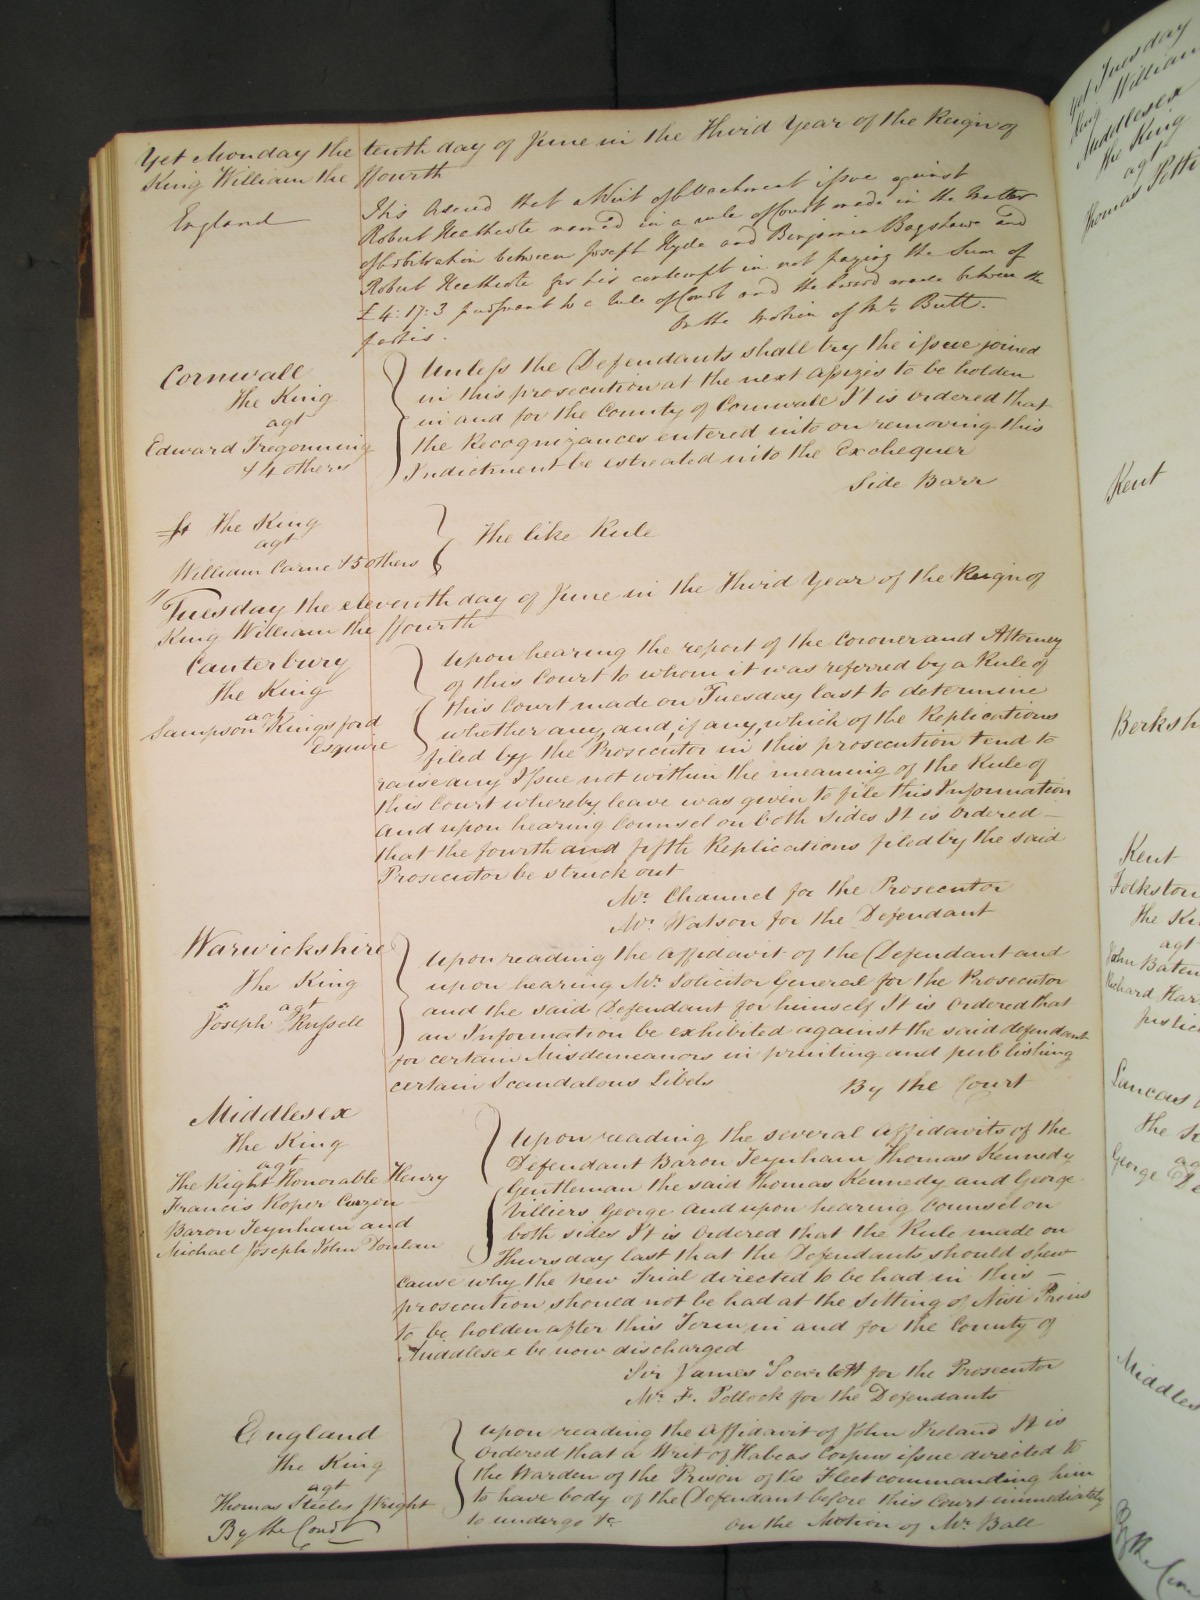 Yet Monday the tenth day of June in the Third Year of the Reign of
King William the ffourth
England
It is Ordered that a Writ of Attachment issue against
Robert Heathcote named in a rule of Court made in the matter
of Arbitration between Joseph Hyde and Benjamin Bagshaw and
Robert Heathcote for his contempt in not paying the Sum of
£4:17:3 pursuant to a rule of Court and the Award made between the
parties.
On the motion of Mr. Butt.
Cornwall
The King
agt
Edward Tregonning
& 4 others
Unless the Defendants shall try the issue joined
in this prosecution at the next Assizes to be holden
in and for the County of Cornwall It is Ordered that
the Recognizances entered into on removing this
Indictment be estreated into the Exchequer
Side Barr
The King
agt
William Carne & 5 others
The like Rule
Tuesday the eleventh day of June in the Third Year of the Reign of
King William the ffourth
Canterbury
The King
agt
Sampson Kingsford
Esquire
Upon hearing the report of the Coroner and Attorney
of this Court to whom it was referred by a Rule of
this Court made on Tuesday last to determine
whether any, and, if any, which of the Replications
filed by the Prosecutor in this prosecution tend to
raise any Issue not within the meaning of the Rule of
this Court whereby leave was given to file this Information
and upon hearing Counsel on both sides It is Ordered
that the fourth and fifth Replications filed by the said
Prosecutor be struck out
Mr. Channel for the Prosecutor
Mr. Watson for the Defendant
Warwickshire
The King
agt
Joseph Russell
Upon reading the affidavit of the Defendant and
upon hearing Mr. Solicitor General for the Prosecutor
and the said Defendant for himself It is Ordered that
an Information be exhibited against the said defendant
for certain Misdemeanors in printing and publishing
certain Scandalous Libels
By the Court
Middlesex
The King
agt
The Right Honorable Henry
Francis Roper Curzon
Baron Teynham and
Michael Joseph John Donlan
Upon reading the several affidavits of the
Defendant Baron Teynham Thomas Kennedy
Gentleman the said Thomas Kennedy and George
Villiers George and upon hearing Counsel on
both sides It is Ordered that the Rule made on
Thursday last that the Defendants should shew
cause why the new Trial directed to be had in this
prosecution should not be had at the Sitting of Nisi Prius
to be holden after this Term in and for the County of
Middlesex be now discharged
Sir James Scarlett for the Prosecutor
Mr. F. Pollock for the Defendants
England
The King
agt
Thomas Steeles Wright
By the Court
Upon reading the affidavit of John Ireland It is
Ordered that a Writ of Habeas Corpus issue directed to
the Warden of the Prison of the Fleet commanding him
to have body of the Defendant before this Court immediately
to undergo &c
On the Motion of Mr. Ball
Yet Tuesday
King William
Middlesex
The King
agt
Thomas
Kent
Berksh
Kent
Folkston
The Ki
agt
John Baten
Richard Har
Justic
Lancas
The K
George
Middles
By the Cou